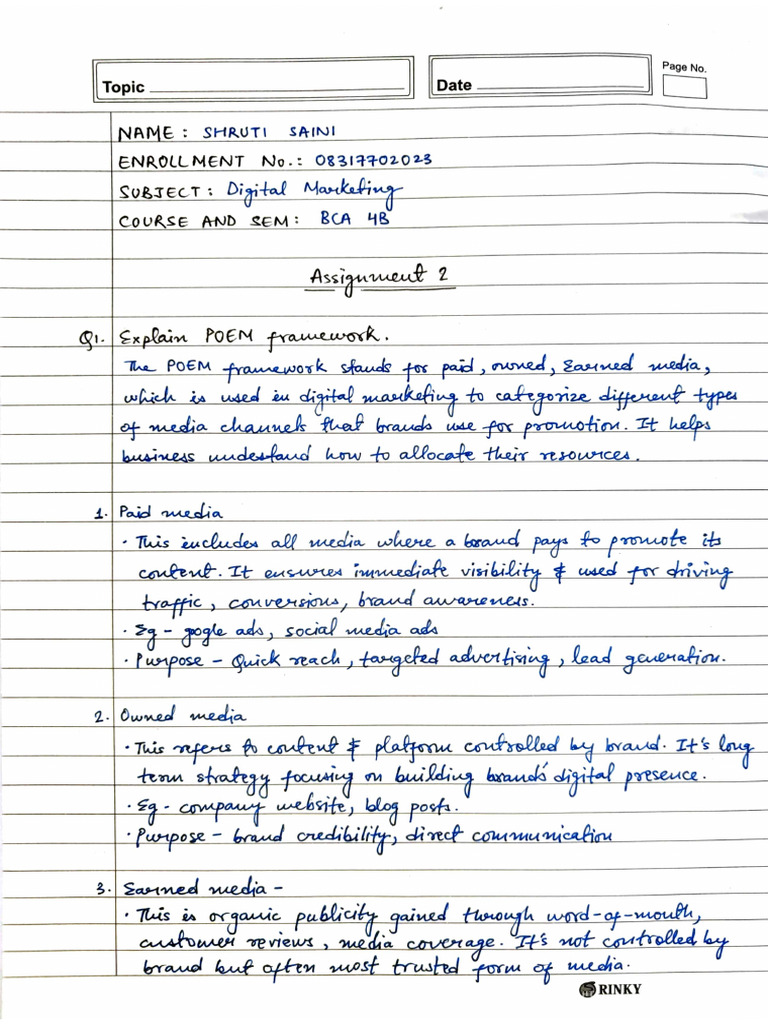 Topic
Date
Page No.
NAME : SHRUTI SAINI
ENROLLMENT No.: 08317702023
SUBJECT : Digital Marketing
COURSE AND SEM: BCA 4B
Assignment 2
Q1. Explain POEM framework.
The POEM framework stands for paid, owned, Earned media,
which is used in digital marketing to categorize different types
of media channels that brands use for promotion. It helps
business understand how to allocate their resources.
1. Paid media
• This includes all media where a brand pays to promote its
content. It ensures immediate visibility & used for driving
traffic, conversions, brand awareness.
• Eg - gogle ads, social media ads
• Purpose - Quick reach, targeted advertising, lead generation.
2. Owned media
• This refers to content & platform controlled by brand. It's long
term strategy focusing on building brand's digital presence.
• Eg - company website, blog posts.
• Purpose - brand credibility, direct communication
3. Earned media -
• This is organic publicity gained through word-of-mouth,
customer reviews, media coverage. It's not controlled by
brand but often most trusted form of media.
RINKY